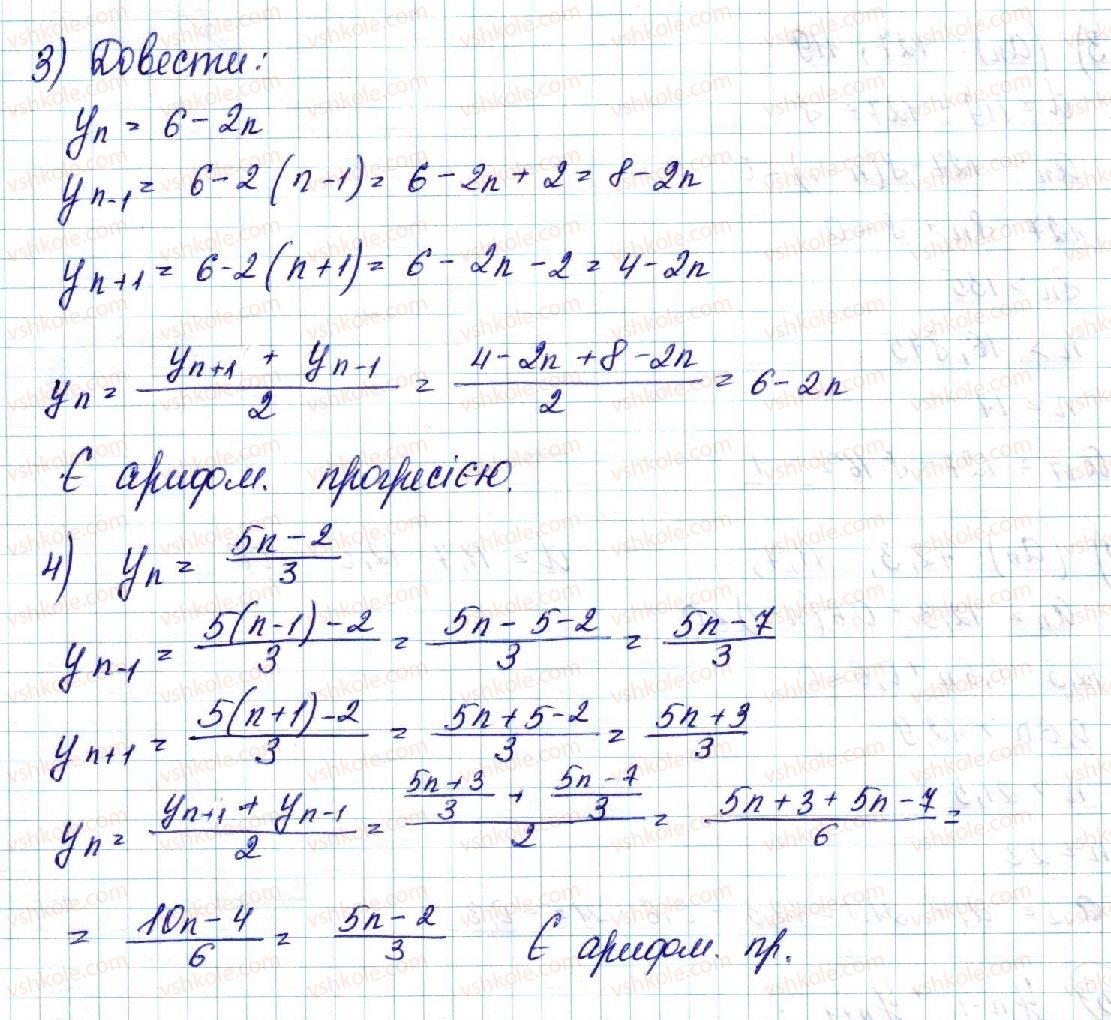 3) Довести:
yₙ = 6 - 2n
yₙ₋₁ = 6 - 2(n-1) = 6 - 2n + 2 = 8 - 2n
yₙ₊₁ = 6 - 2(n+1) = 6 - 2n - 2 = 4 - 2n
yₙ = (yₙ₊₁ + yₙ₋₁)/2 = (4 - 2n + 8 - 2n)/2 = 6 - 2n
Є арифм. прогресією.
4) yₙ = (5n - 2)/3
yₙ₋₁ = (5(n-1) - 2)/3 = (5n - 5 - 2)/3 = (5n - 7)/3
yₙ₊₁ = (5(n+1) - 2)/3 = (5n + 5 - 2)/3 = (5n + 3)/3
yₙ = (yₙ₊₁ + yₙ₋₁)/2 = ((5n + 3)/3 + (5n - 7)/3)/2 = (5n + 3 + 5n - 7)/6 =
= (10n - 4)/6 = (5n - 2)/3 Є арифм. пр.
vshkole.com